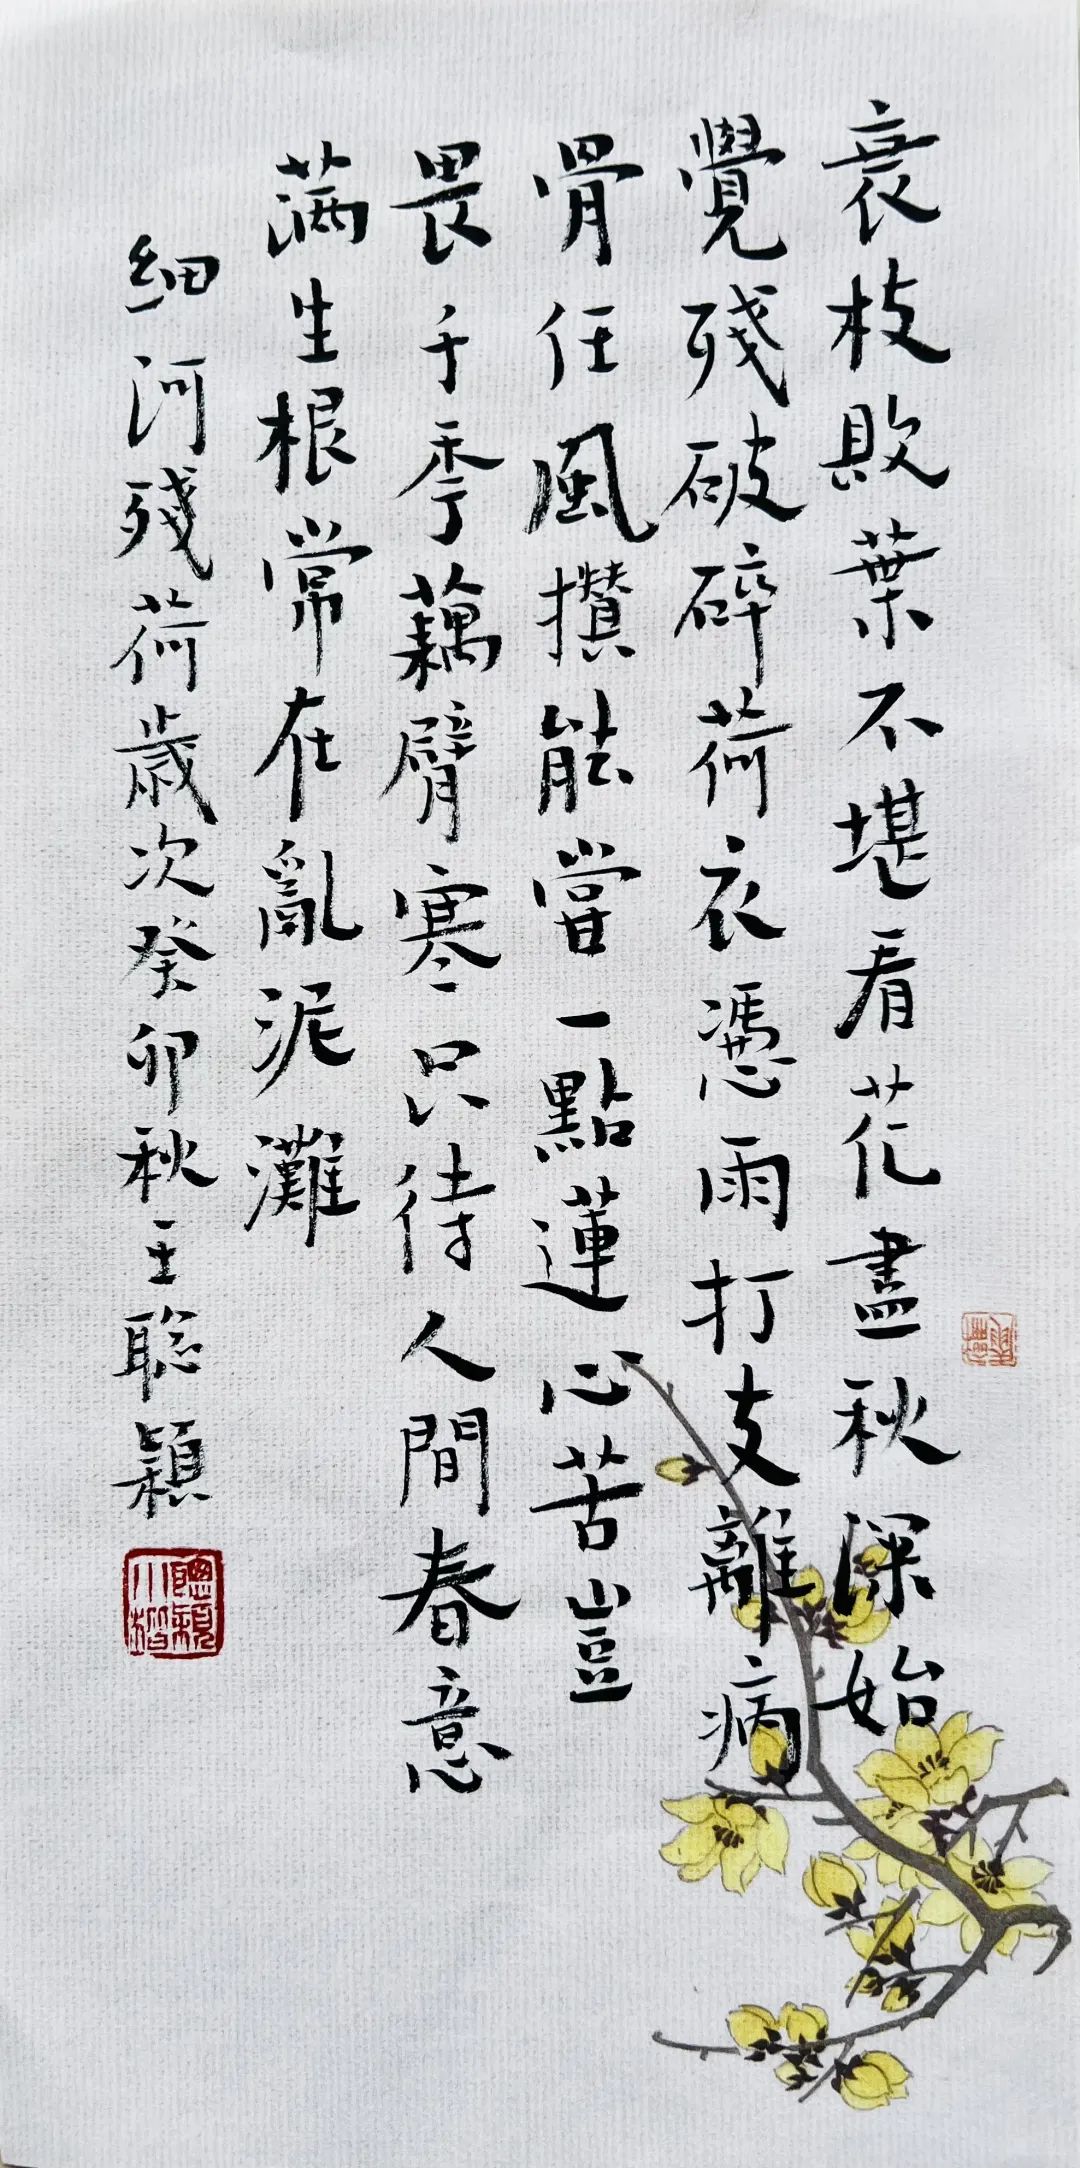 衰枝敗葉不堪看花盡秋深始
覺殘破碎荷衣憑雨打支離病
骨任風攢能甞一點蓮心苦豈
畏千秊藕臂寒只待人間春意
满生根常在亂泥灘
細河殘荷歲次癸卯秋王聡穎
聰穎小楷